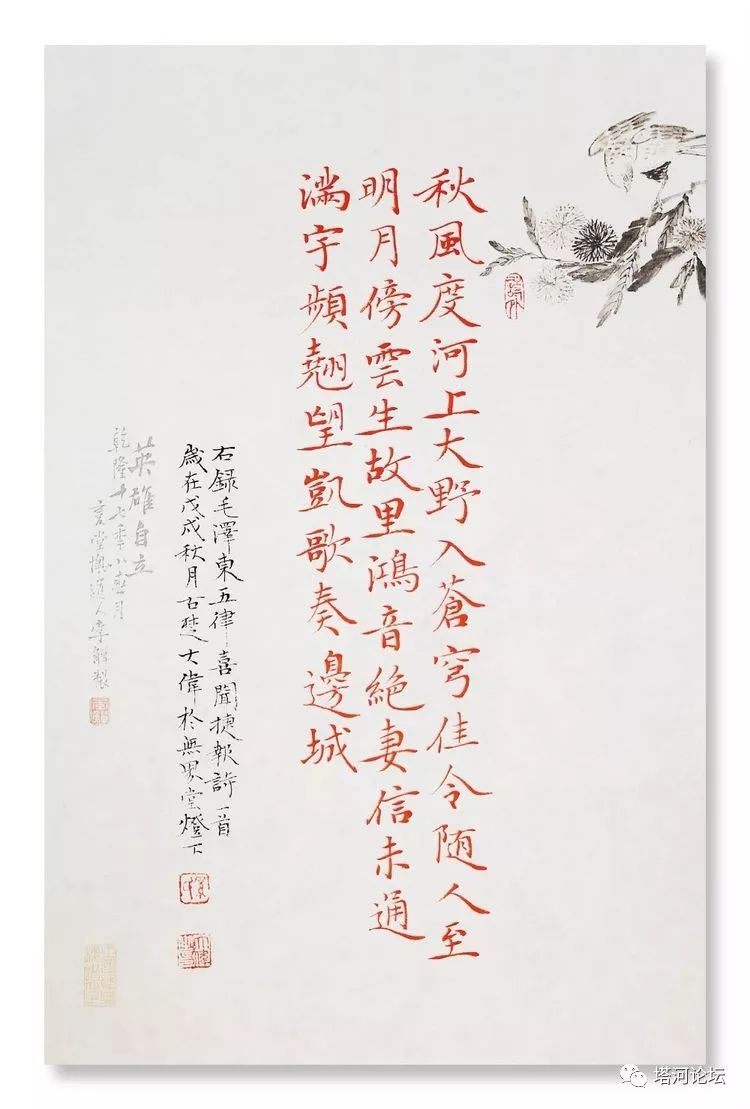 秋風度河上大野入蒼穹佳令随人至
明月傍雲生故里鴻音絶妻信未通
滿宇頻翹望凱歌奏邊城
右録毛澤東五律喜聞捷報詩一首
歲在戊戌秋月古楚大偉於無畏堂燈下
英雄自立
乾隆十七季小月
堂道人李製
塔河论坛